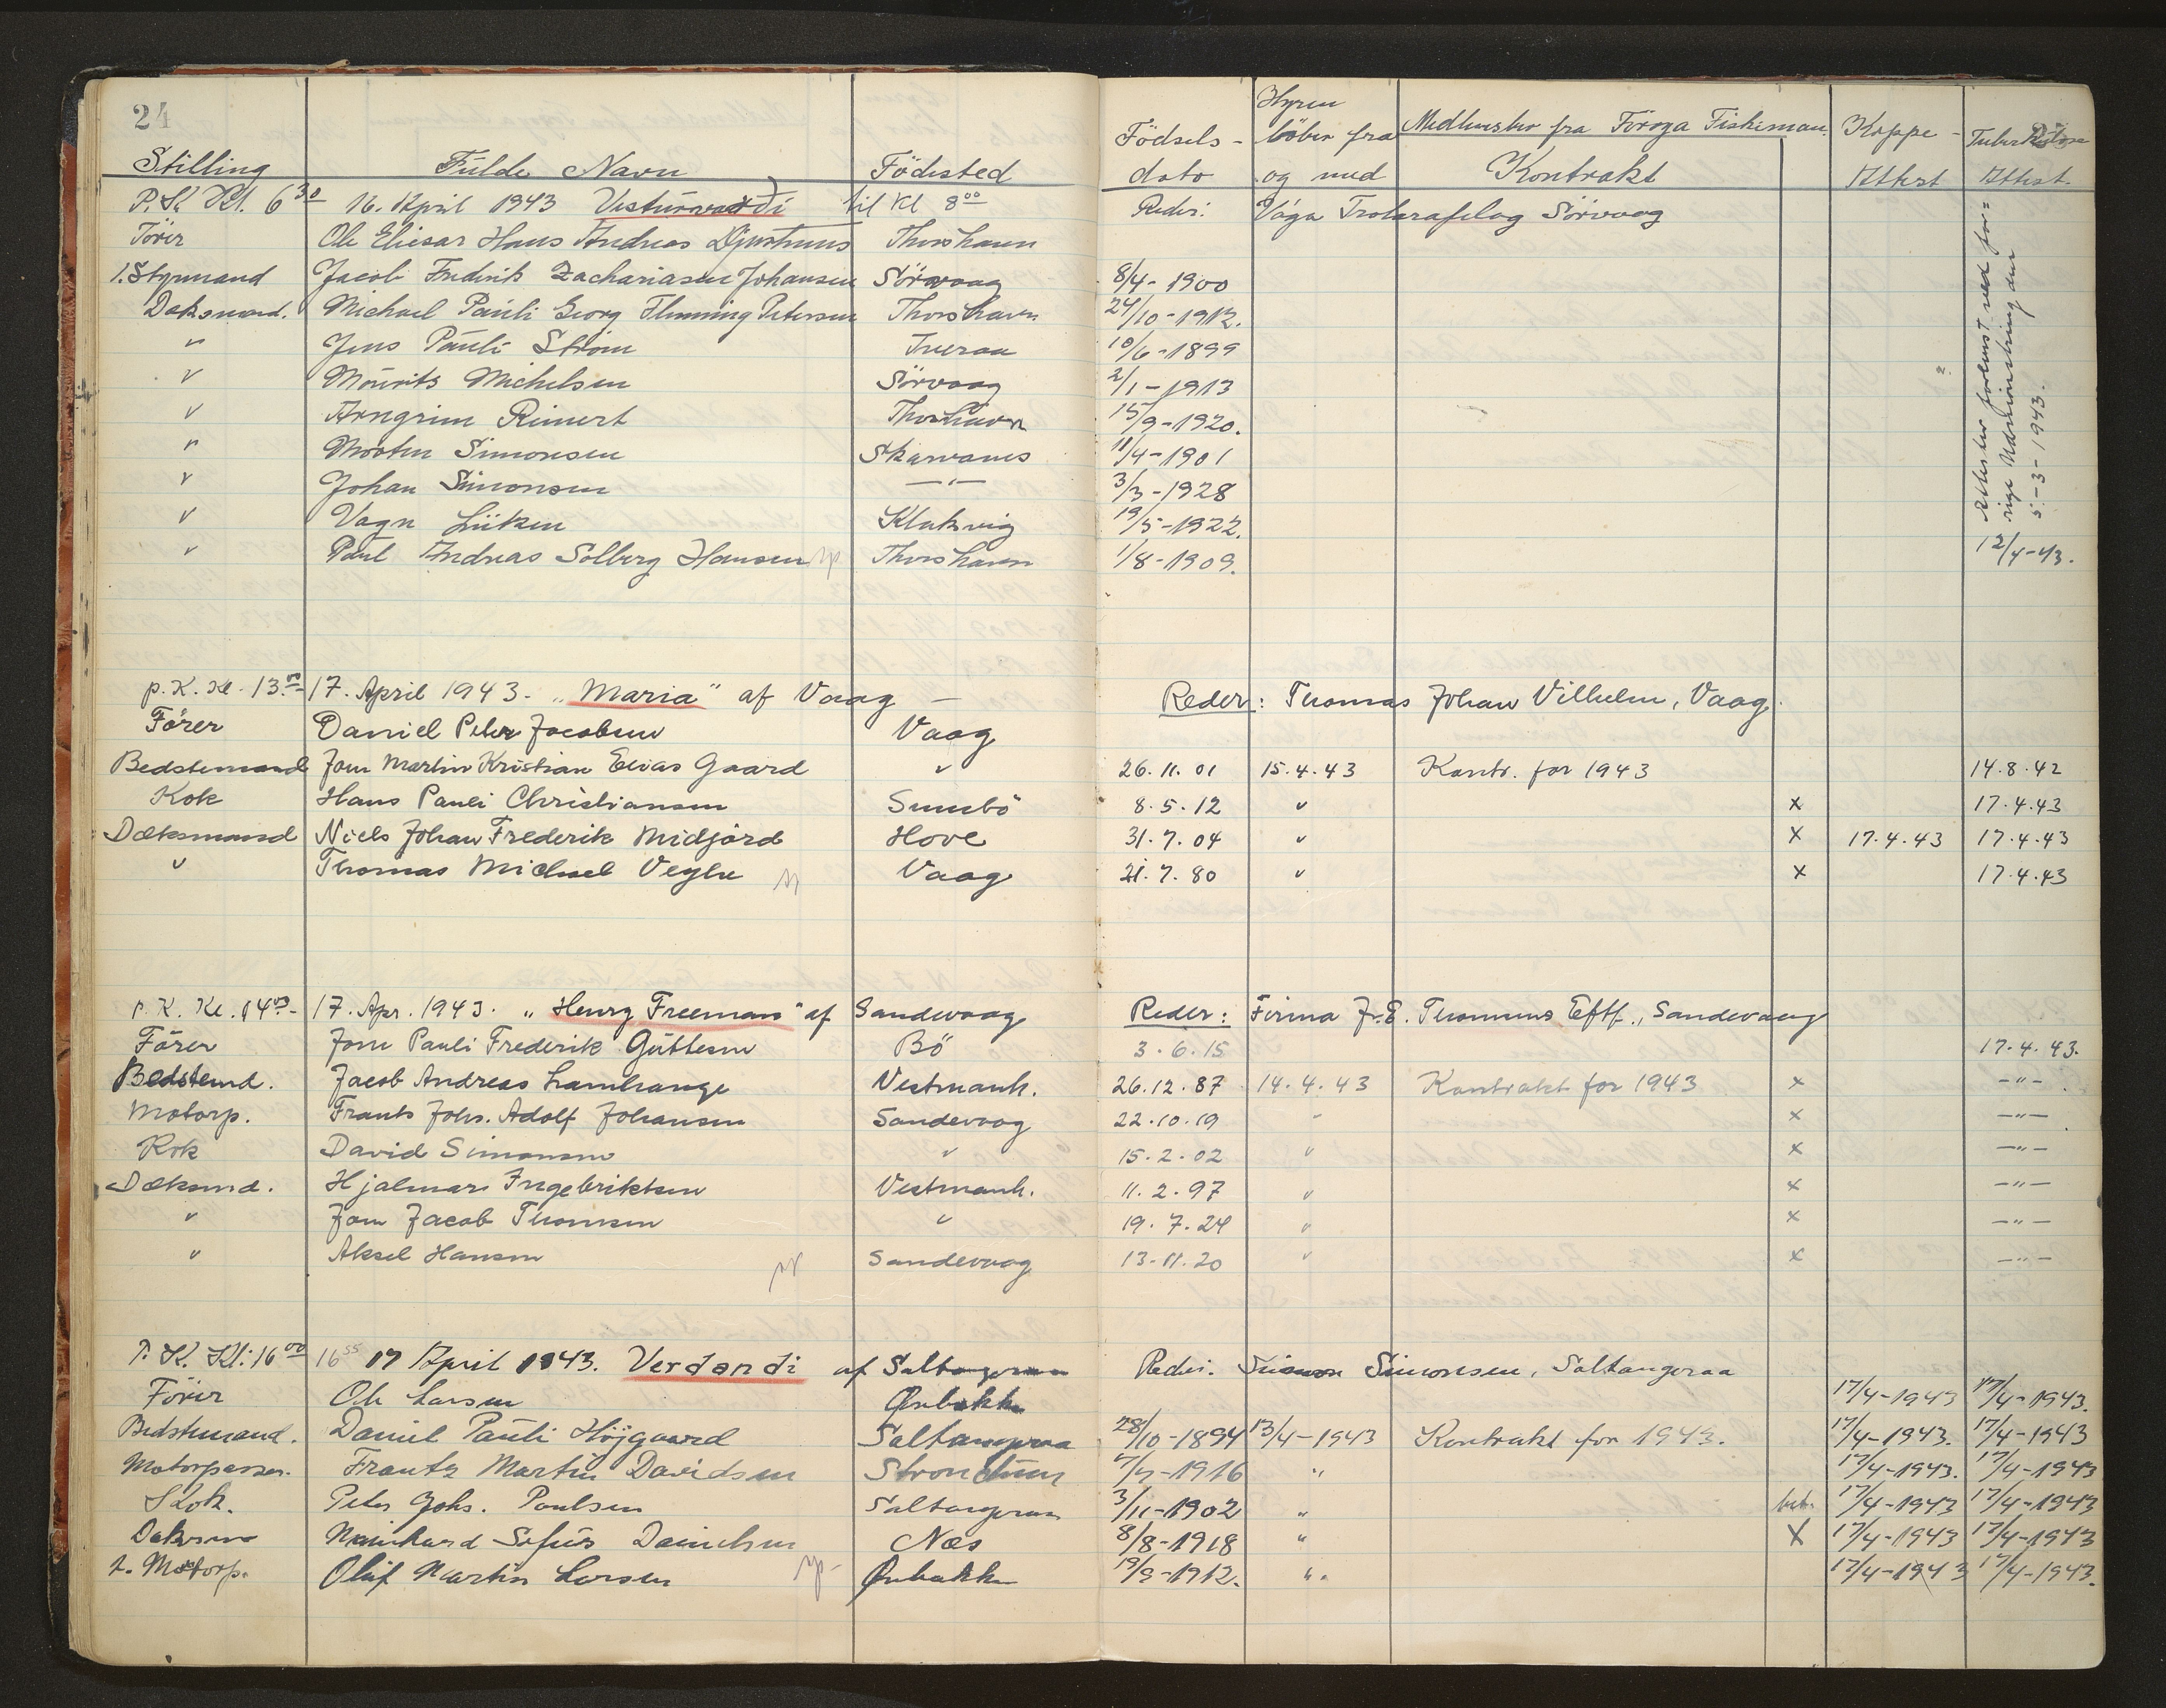 24
Stilling Fulde Navn Födested Födsels-dato Hyre böber fra og med Medlemsber fra Föroya Fiskiman. Kontrakt Koppe-Attest Tuberkulose Attest.
P.K. Kl. 6³⁰ 16. April 1943 Vesturvardi til Kl 8⁰⁰ Reder: Vága Trolarafelag Sörvaag
Förer Ole Eliesar Hans Andreas Djurhuus Thorshavn
1. Styrmand Jacob Fredrik Zachariasen Johansen Sörvaag 8/4-1900
Daksmand. Michael Pauli Georg Flemming Petersen Thorshavn 24/10-1912.
" Jens Pauli Ström Tveraa 10/6-1899
" Mourits Michelsen Sörvaag 2/1-1913
" Arngrim Reinert Thorshavn 15/9-1920.
" Morten Simonsen Skarvanes 11/4-1901
" Johan Simonsen —"— 3/3-1928
" Vagn Lützen Klaksvig 19/5-1922.
" Paul Andreas Solberg Hansen Thorshavn 1/8-1909. 12/4-43.
Attester forevist ved forrige Udmönstring den 5-3-1943.
p.K. Kl. 13.⁰⁰- 17. April 1943. "Maria" af Vaag — Reder: Thomas Johan Vilhelm, Vaag.
Förer Daniel Peter Jacobsen Vaag
Bedstemand Joen Martin Kristian Elias Gaard " 26.11.01 15.4.43 Kontr. for 1943 14.8.42
Kok Hans Pauli Christiansen Sumbö 8.5.12 " x 17.4.43
Dæksmand Niels Johan Frederik Midjord Hove 31.7.04 " x 17.4.43 17.4.43
" Thomas Michael Veyhe Vaag 21.7.80 " x 17.4.43
P.K. Kl. 14⁰⁰- 17. Apr. 1943. "Henry Freeman" af Sandevaag Reder: Firma J.F. Thomsens Eftf., Sandevaag
Förer Joen Pauli Frederik Guttesen Bö 3.6.15 17.4.43.
Bedstemd. Jacob Andreas Lamhauge Vestmanh. 26.12.87 14.4.43 Kontrakt for 1943 x —"—
Motorp. Frants Johs. Adolf Johansen Sandevaag 22.10.19 " x —"—
Kok David Simonsen " 15.2.02 " x —"—
Dæksmd. Hjalmar Ingebriktsen Vestmanh. 11.2.97 " x —"—
" Joen Jacob Thomsen " 19.7.24 " x —"—
" Aksel Hansen Sandevaag 13.11.20 " x —"—
P.K. Kl: 16⁰⁰ 16⁵⁵ 17 April 1943. Verdandi af Saltangeraa Reder. Simon Simonsen, Saltangeraa
Förer Ole Larsen Ørebakke 17/4-1943 17/4-1943.
Bedstemand. Daniel Pauli Höjgaard Saltangeraa 28/10-1894 13/4-1943 Kontrakt for 1943. 17/4-1943. 17/4-1943
Motorpasser. Frantz Martin Davidsen Strendum 7/7-1916 " 17/4-1943. 17/4-1943
Kok. Peter Johs. Poulsen Saltangeraa 3/11-1902 " 17/4-1943 17/4-1943
Daksm Meinhard Sofus Danielsen Næs 8/8-1918 " X 17/4-1943 17/4-1943
2. Motorp. Oluf Martin Larsen Ørebakke 19/9-1912. " 17/4-1943 17/4-1943.